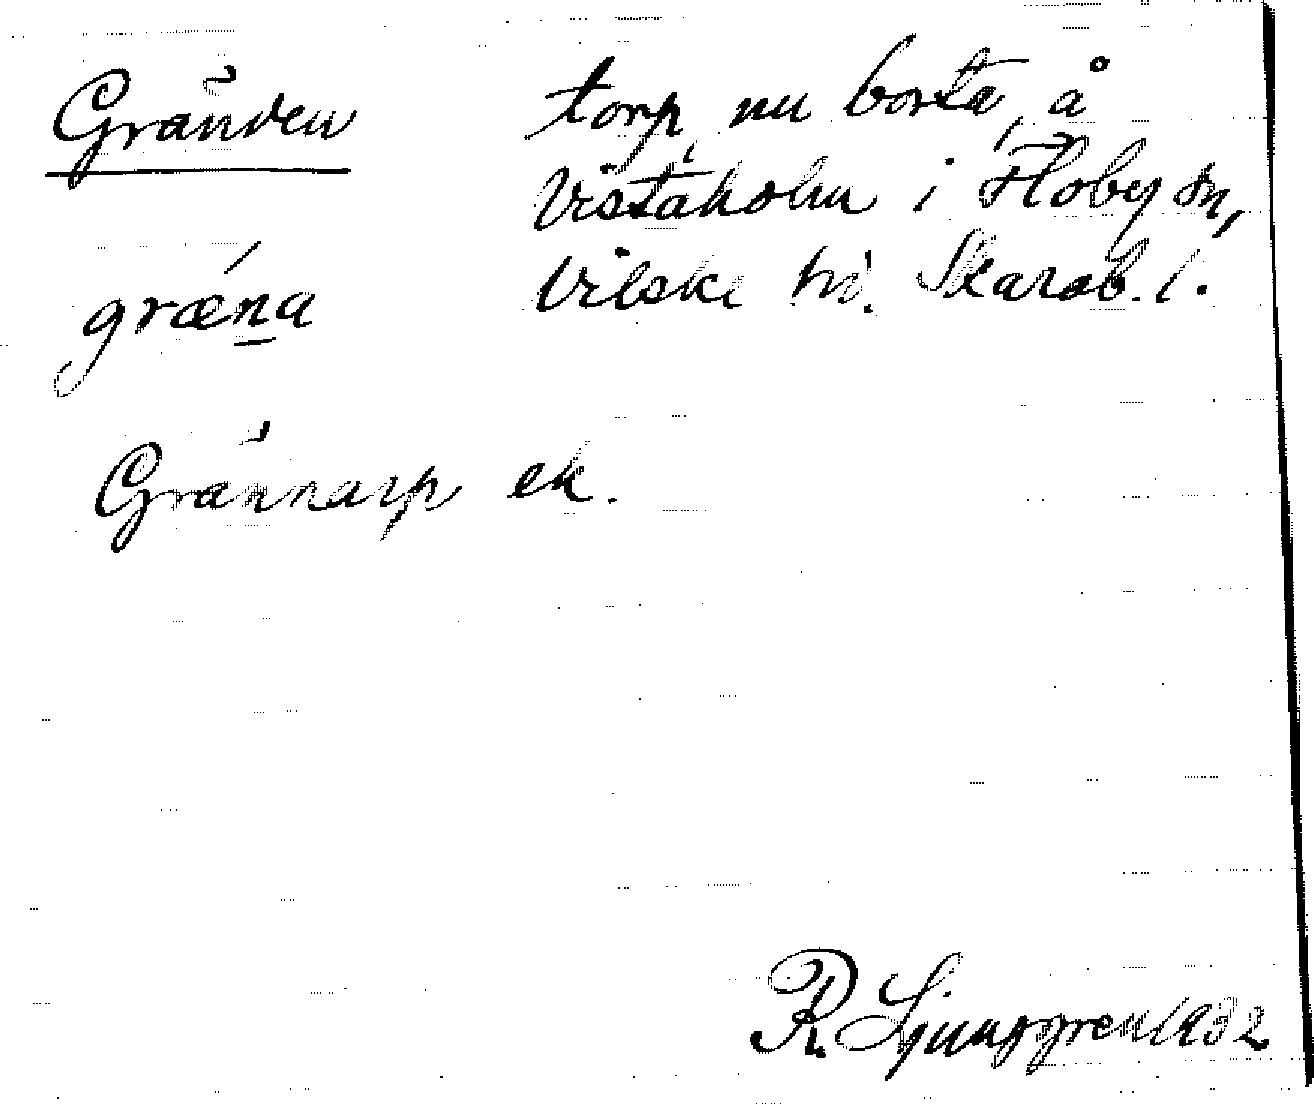 Gränden
torp, nu borta, å
Vistaholm i Floby sn,
Vilske hd. Skarab. l.
græna
Grännarp ek.
R. Ljunggren 1932